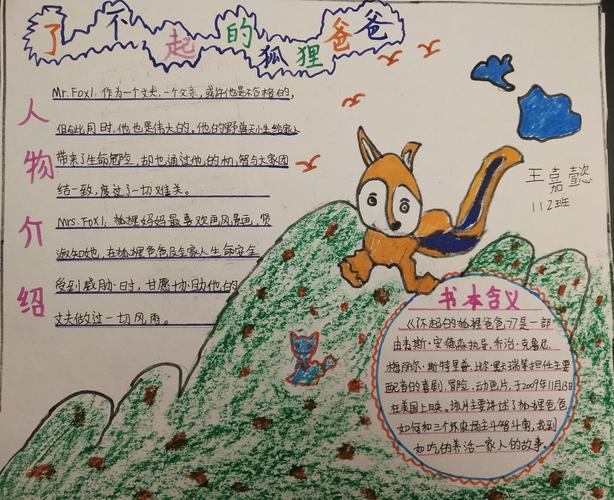 了不起的狐狸爸爸
人物介绍
Mr.Fox1:作为一个丈夫.一个父亲,或许他是不合格的,
但与此同时.他也是伟大的。他的野兽天性给家人
带来了生命危险,却也通过他的机智与大家团
结一致,度过了一切难关。
Mrs.Fox1:狐狸妈妈最喜欢画风景画,贤
淑知她,在狐狸爸爸及全家人生命安全
受到威胁时,甘愿协助他的
丈夫做过一切风雨。
王嘉懿
112班
书本含义
《了不起的狐狸爸爸》是一部
由韦斯·安德森执导,乔治·克鲁尼,
梅丽尔·斯特里普、比尔·默瑞等担任主要
配音的喜剧,冒险,动画片,于2009年11月13日
在美国上映。该片主要讲述了狐狸爸爸
如何和三个坏农场主斗智斗勇,找到
如吃的养活一家人的故事。